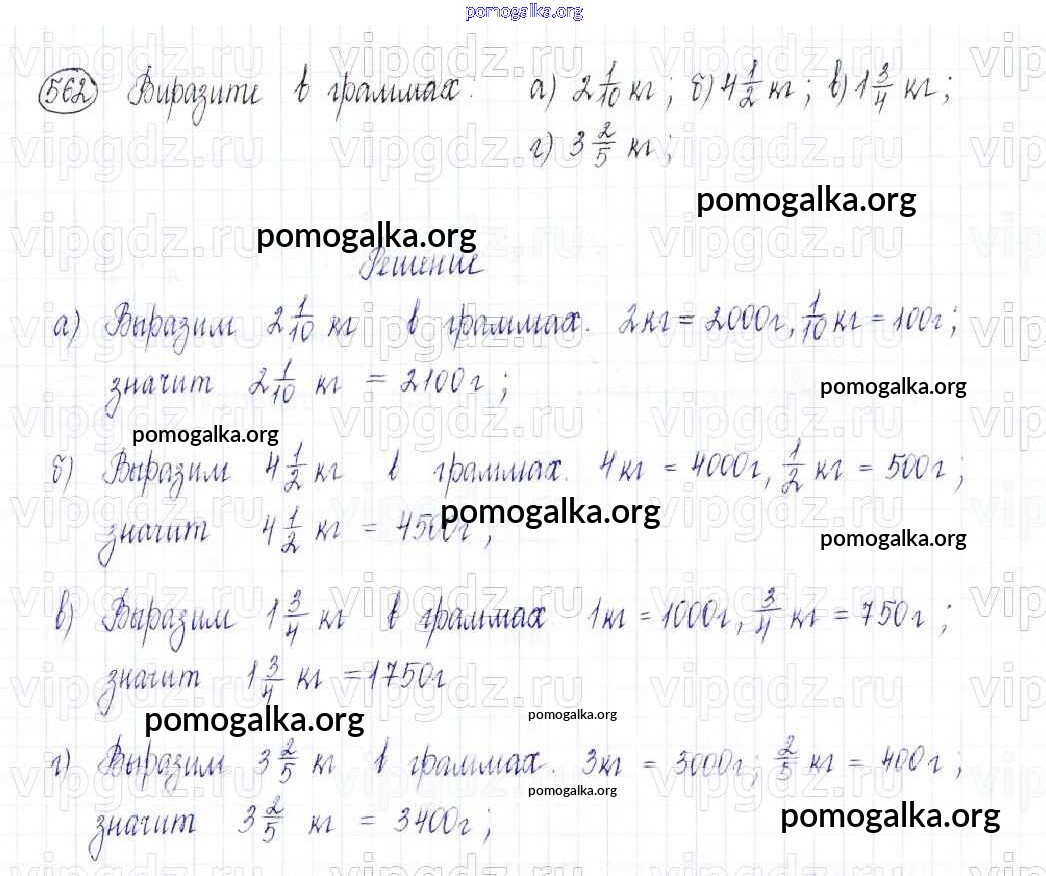 pomogalka.org
562 Выразите в граммах: а) 2 1/10 кг; б) 4 1/2 кг; в) 1 3/4 кг;
г) 3 2/5 кг;
pomogalka.org
pomogalka.org
Решение
а) Выразим 2 1/10 кг в граммах. 2кг = 2000г, 1/10 кг = 100г;
значит 2 1/10 кг = 2100г;
pomogalka.org
pomogalka.org
б) Выразим 4 1/2 кг в граммах. 4кг = 4000г, 1/2 кг = 500г;
pomogalka.org
значит 4 1/2 кг = 4500г;
pomogalka.org
в) Выразим 1 3/4 кг в граммах 1кг = 1000г, 3/4 кг = 750г;
значит 1 3/4 кг = 1750г
pomogalka.org
pomogalka.org
г) Выразим 3 2/5 кг в граммах. 3кг = 3000г; 2/5 кг = 400г;
pomogalka.org
значит 3 2/5 кг = 3400г;
pomogalka.org
vipgdz.ru vipgdz.ru vipgdz.ru vip